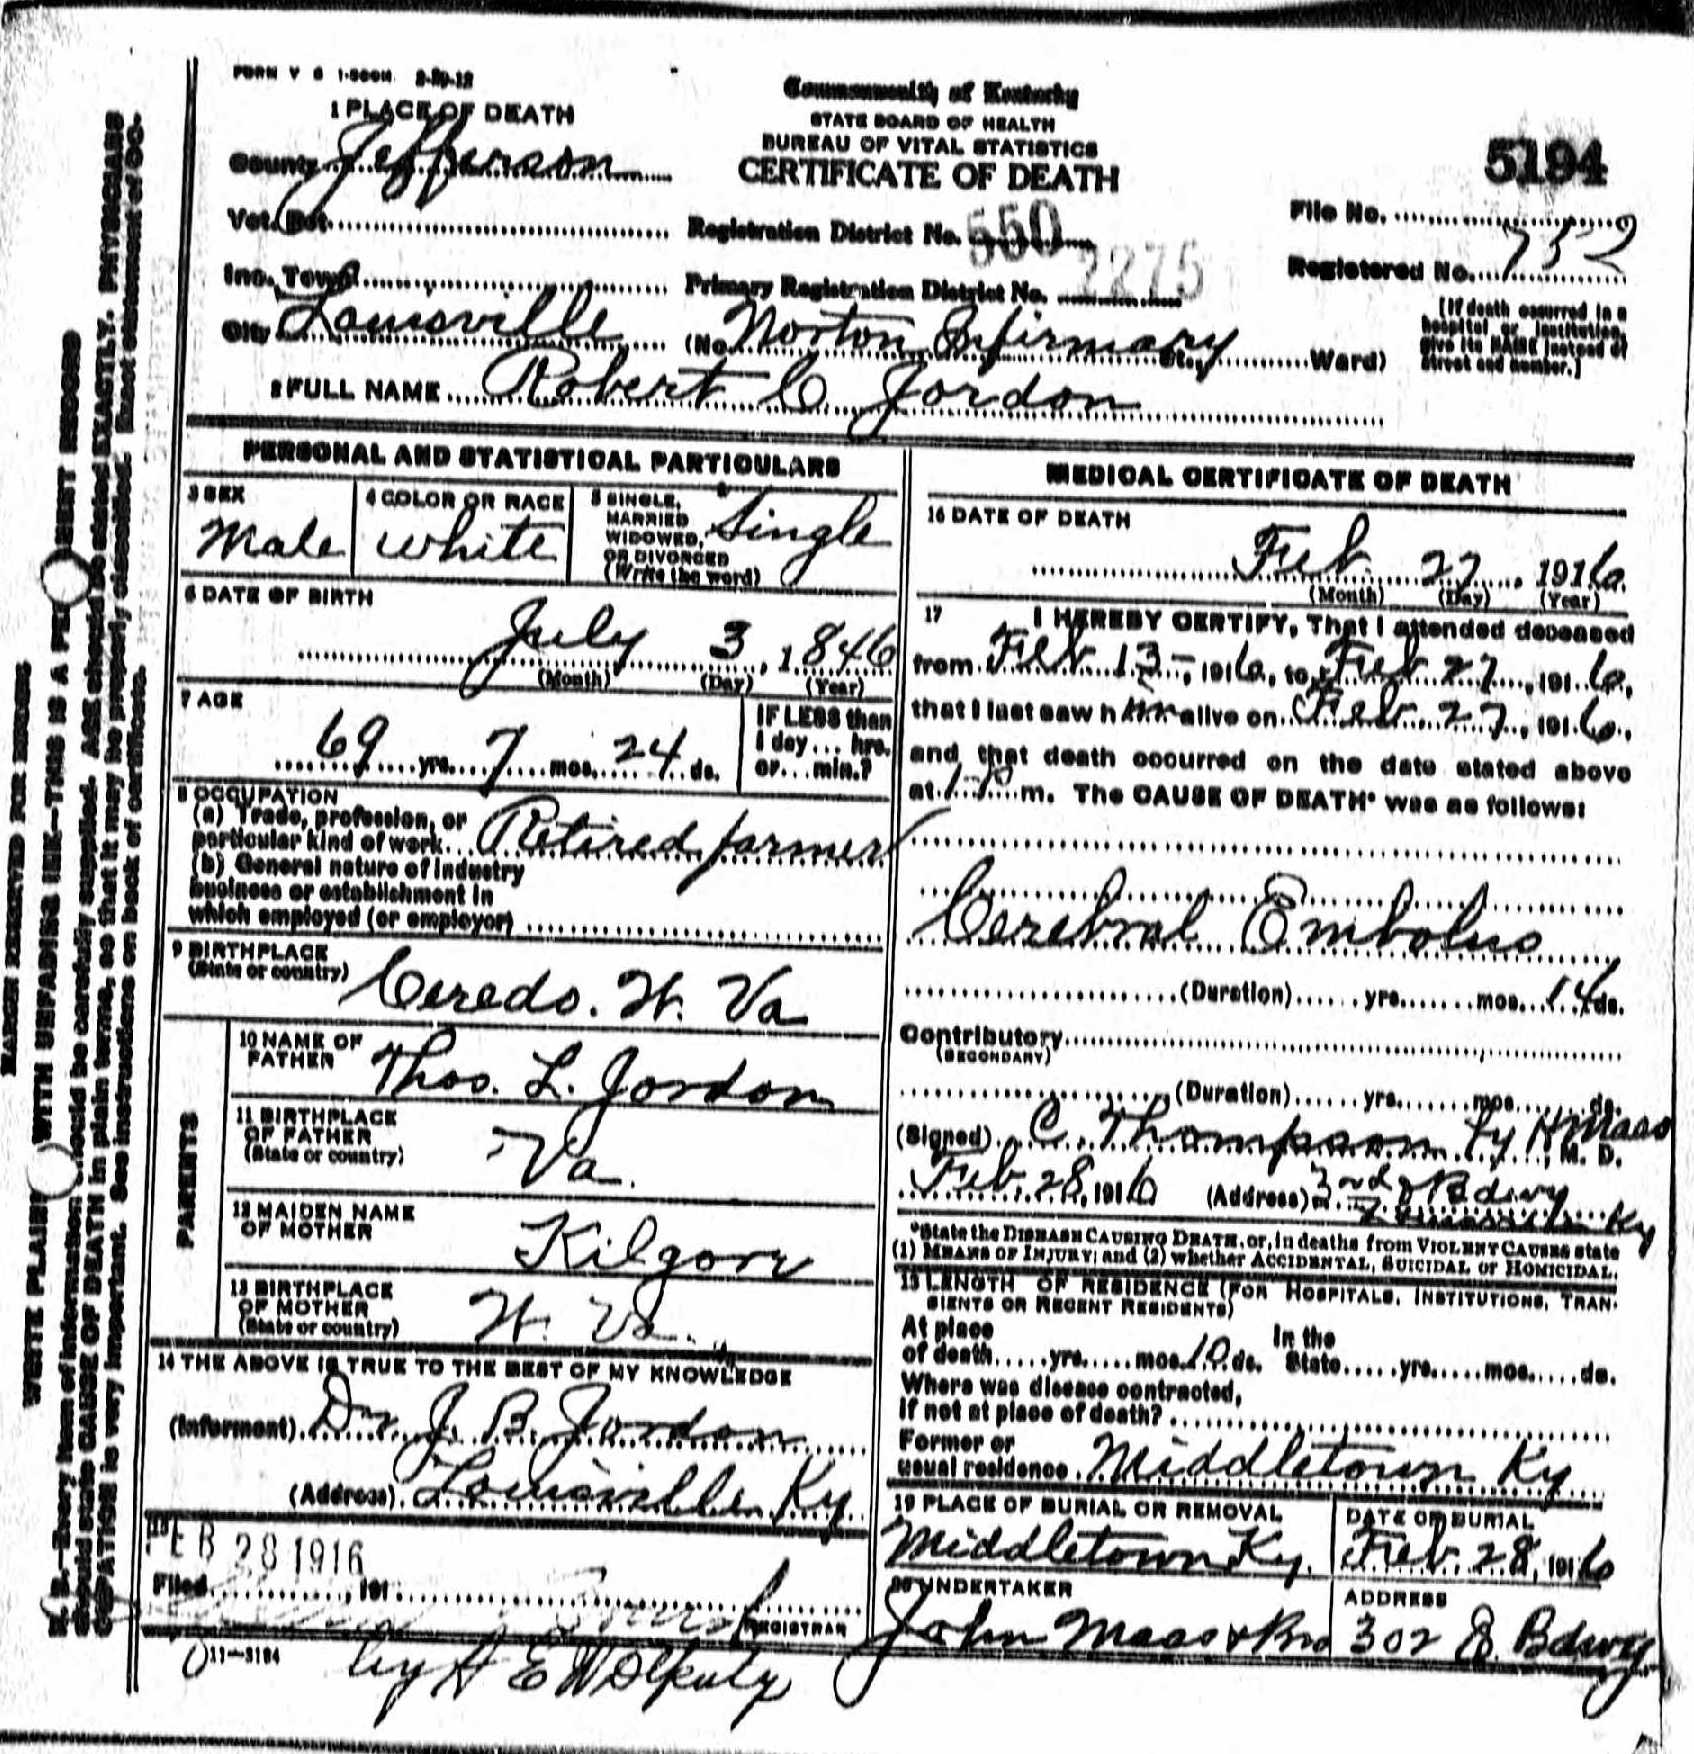 FORM V S 1-500M 2-20-12
1 PLACE OF DEATH
County Jefferson
Vot. Pct.
Inc. Town
City Louisville (No. Norton Infirmary St., Ward)
2 FULL NAME Robert C Jordon
Commonwealth of Kentucky
STATE BOARD OF HEALTH
BUREAU OF VITAL STATISTICS
CERTIFICATE OF DEATH
Registration District No. 550
Primary Registration District No. 2275
5194
File No.
Registered No. 752
[If death occurred in a
hospital or institution,
give its NAME instead of
street and number.]
PERSONAL AND STATISTICAL PARTICULARS
3 SEX
Male
4 COLOR OR RACE
White
5 SINGLE,
MARRIED
WIDOWED,
OR DIVORCED
(Write the word)
Single
6 DATE OF BIRTH
July 3, 1846
(Month) (Day) (Year)
7 AGE
69 yrs. 7 mos. 24 ds.
IF LESS than
1 day... hrs.
or... min.?
8 OCCUPATION
(a) Trade, profession, or
particular kind of work Retired farmer
(b) General nature of industry
business or establishment in
which employed (or employer)
9 BIRTHPLACE
(State or country) Ceredo. W. Va
PARENTS
10 NAME OF
FATHER Thos. L. Jordon
11 BIRTHPLACE
OF FATHER
(State or country) Va.
12 MAIDEN NAME
OF MOTHER Kilgore
13 BIRTHPLACE
OF MOTHER
(State or country) W. Va.
14 THE ABOVE IS TRUE TO THE BEST OF MY KNOWLEDGE
(Informant) Dr. J. B. Jordon
(Address) Louisville Ky.
15
FEB 28 1916
Filed, 191
REGISTRAR
11-3184
by H E
MEDICAL CERTIFICATE OF DEATH
16 DATE OF DEATH
Feb 27, 1916
(Month) (Day) (Year)
17 I HEREBY CERTIFY, That I attended deceased
from Feb 13, 1916, to Feb 27, 1916,
that I last saw him alive on Feb 27, 1916,
and that death occurred on the date stated above
at m. The CAUSE OF DEATH* was as follows:
Cerebral Embolus
(Duration) yrs. mos. 14 ds.
Contributory
(SECONDARY)
(Duration) yrs. mos. ds.
(Signed) C. Thompson H Maas M. D.
Feb. 28, 1916 (Address) 2nd & Bdwy
Louisville Ky
*State the DISEASE CAUSING DEATH, or, in deaths from VIOLENT CAUSES state
(1) MEANS OF INJURY; and (2) whether ACCIDENTAL, SUICIDAL or HOMICIDAL.
18 LENGTH OF RESIDENCE (FOR HOSPITALS, INSTITUTIONS, TRAN-
SIENTS OR RECENT RESIDENTS)
At place
of death yrs. mos. 10 ds. In the
State yrs. mos. ds.
Where was disease contracted,
if not at place of death?
Former or
usual residence Middletown Ky
19 PLACE OF BURIAL OR REMOVAL
Middletown Ky.
DATE OF BURIAL
Feb. 28, 1916
20 UNDERTAKER
John Maas & Bro
ADDRESS
302 E. Bdwy
MARGIN RESERVED FOR BINDING
WRITE PLAINLY WITH UNFADING INK—THIS IS A PERMANENT RECORD
N. B.—Every item of information should be carefully supplied. AGE should be stated EXACTLY. PHYSICIANS
should state CAUSE OF DEATH in plain terms, so that it may be properly classified. Exact statement of OC-
CUPATION is very important. See instructions on back of certificate.